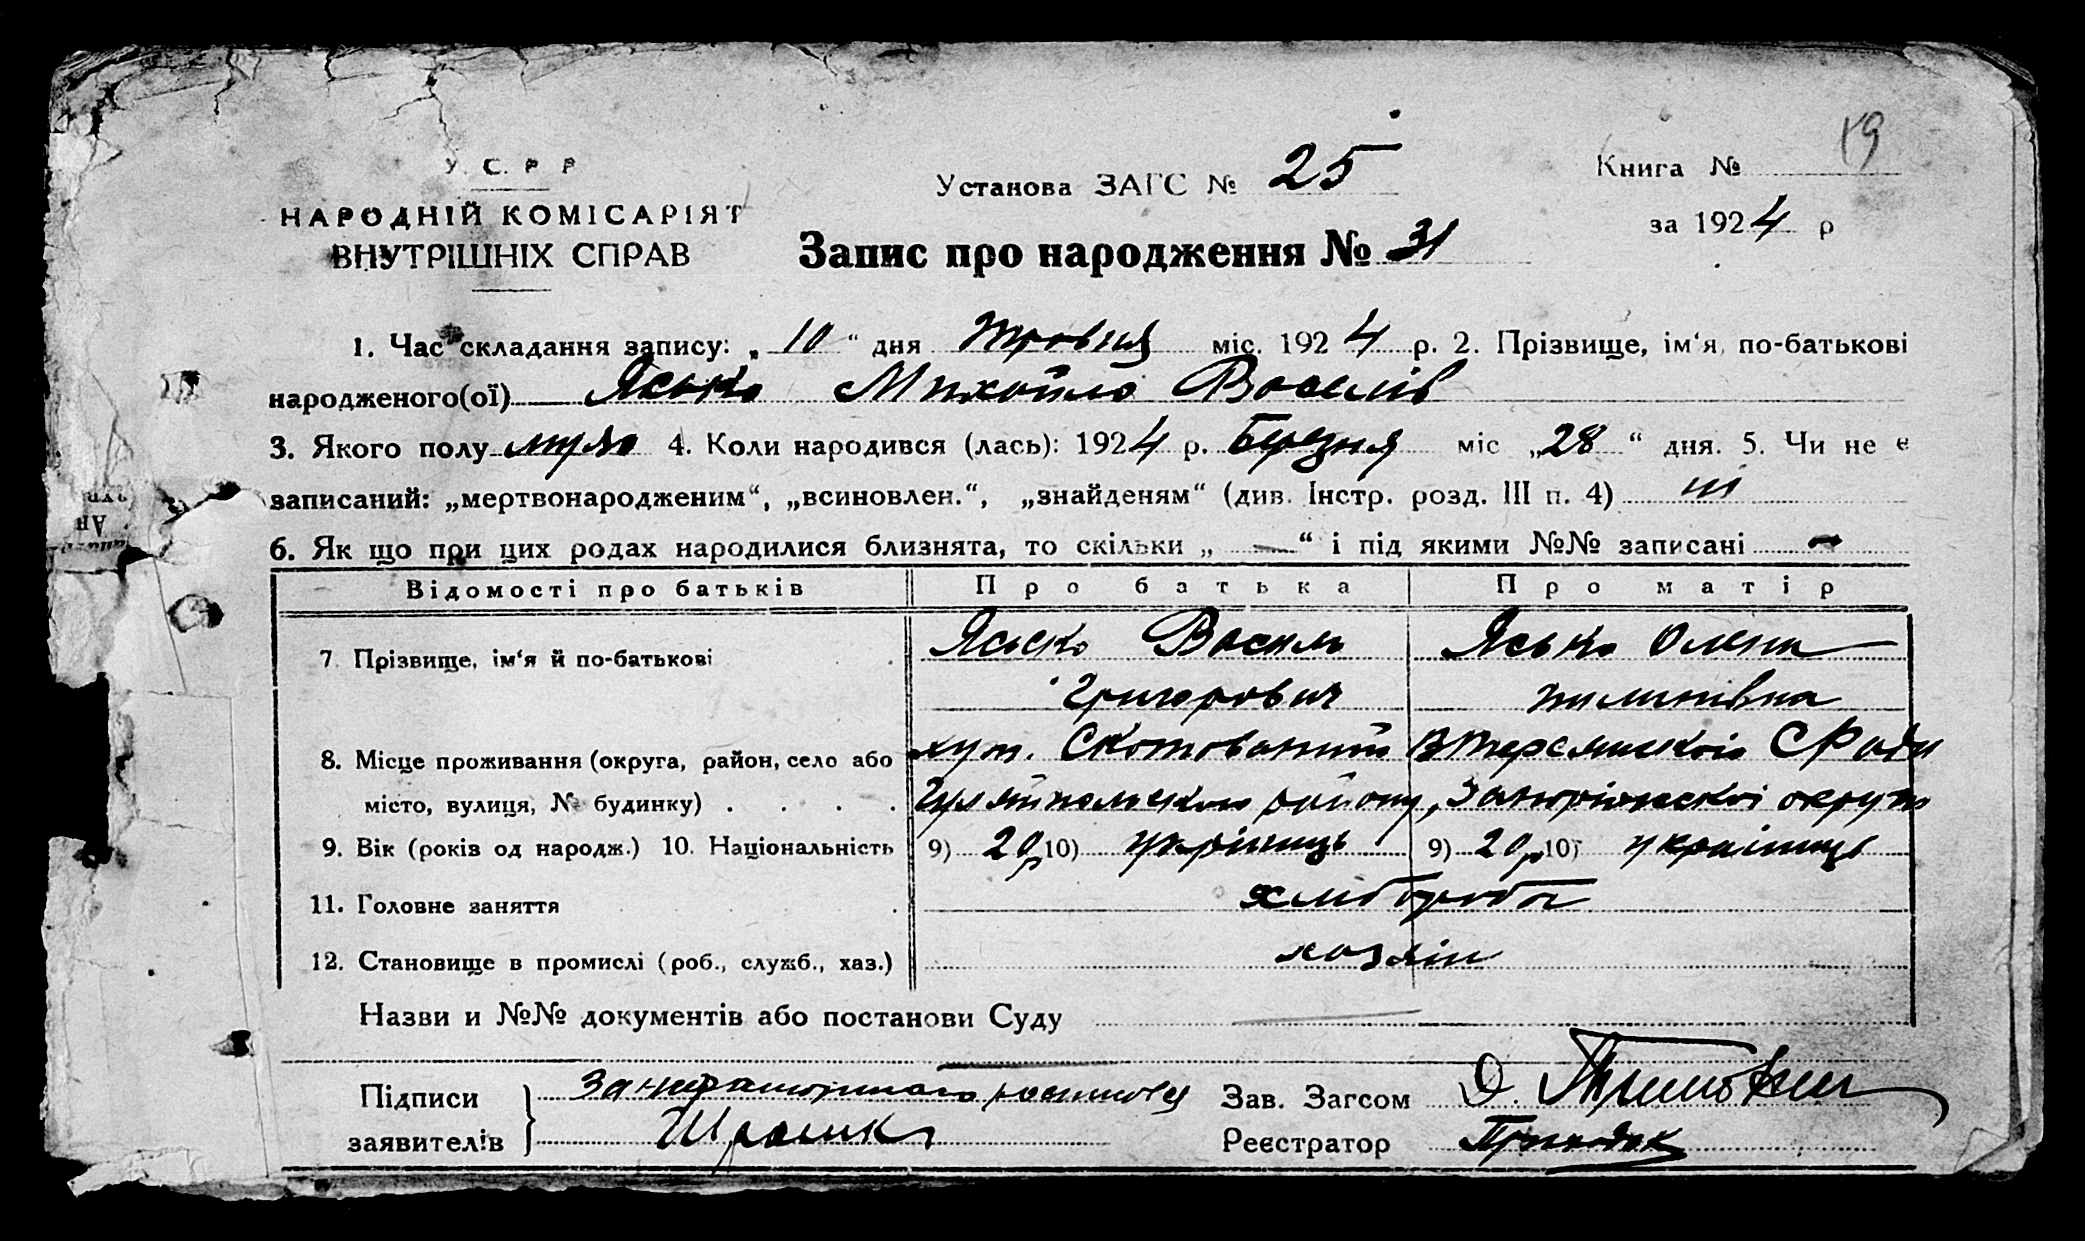 19
У. С. Р Р
Установа ЗАГС № 25
Книга №
НАРОДНІЙ КОМІСАРІЯТ
за 1924 р
ВНУТРІШНІХ СПРАВ
Запис про народження № 31
1. Час складання запису: „ 10 “ дня Травня міс. 1924 р. 2. Прізвище, ім‘я, по-батькові
народженого(ої) Ясько Михайло Василів
3. Якого полу 4. Коли народився (лась): 1924 р. Березня міс „28“ дня. 5. Чи не є
записаний: „мертвонародженим“, „всиновлен.“, „знайденям“ (див. Інстр. розд. III п. 4) ні
6. Як що при цих родах народилися близнята, то скільки „ — “ і під якими №№ записані —
Відомості про батьків Про батька Про матір
7. Прізвище, ім‘я й по-батькові Ясько Василь Ясько Олена
Григорович Пилипівна
8. Місце проживання (округа, район, село або хут. Скотоватий СРади
місто, вулиця, № будинку) . . . . Гуляйпольского району, Запоріжскої округи
9. Вік (років од народж.) 10. Національність 9) 20р 10) 9) 20р 10)
11. Головне заняття . хлібороби
12. Становище в промислі (роб., служб., хаз.) хозяін
Назви и №№ документів або постанови Суду
Підписи За неграмотного росписався Зав. Загсом
заявителів Реєстратор Приходок